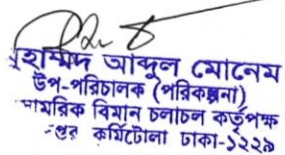 হাম্মদ আব্দুল মোনেম
উপ-পরিচালক (পরিকল্পনা)
সামরিক বিমান চলাচল কর্তৃপক্ষ
কুর্মিটোলা ঢাকা-১২২৯